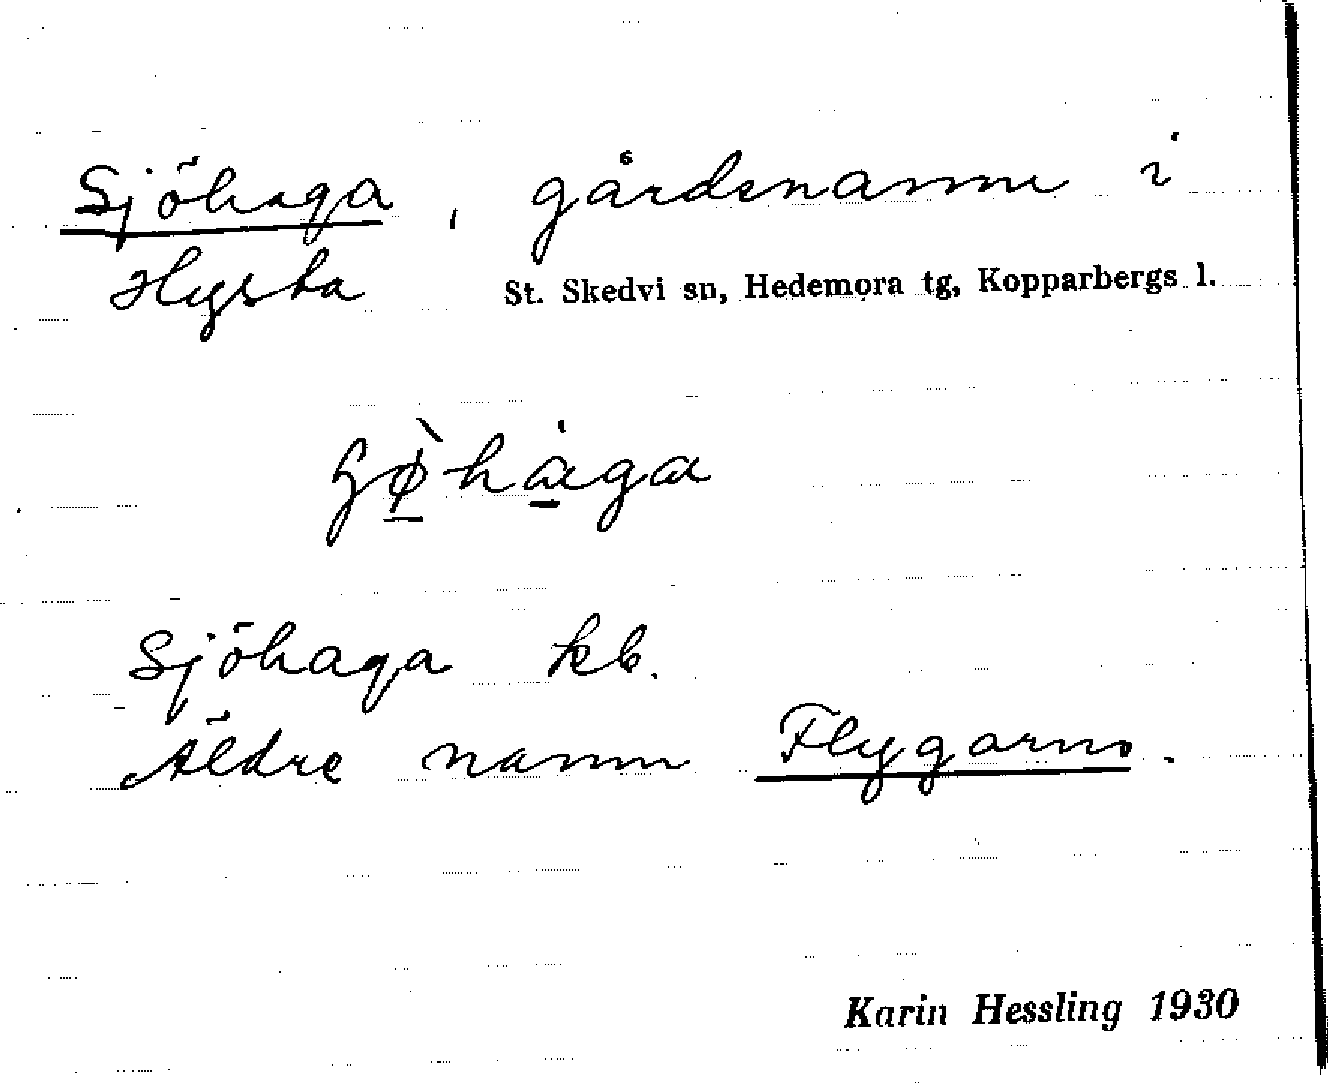 Sjöhaga, gårdsnamn i
Hysta St. Skedvi sn, Hedemora tg, Kopparbergs l.
Sjöhaga kb.
Äldre namn Flygarns.
Karin Hessling 1930